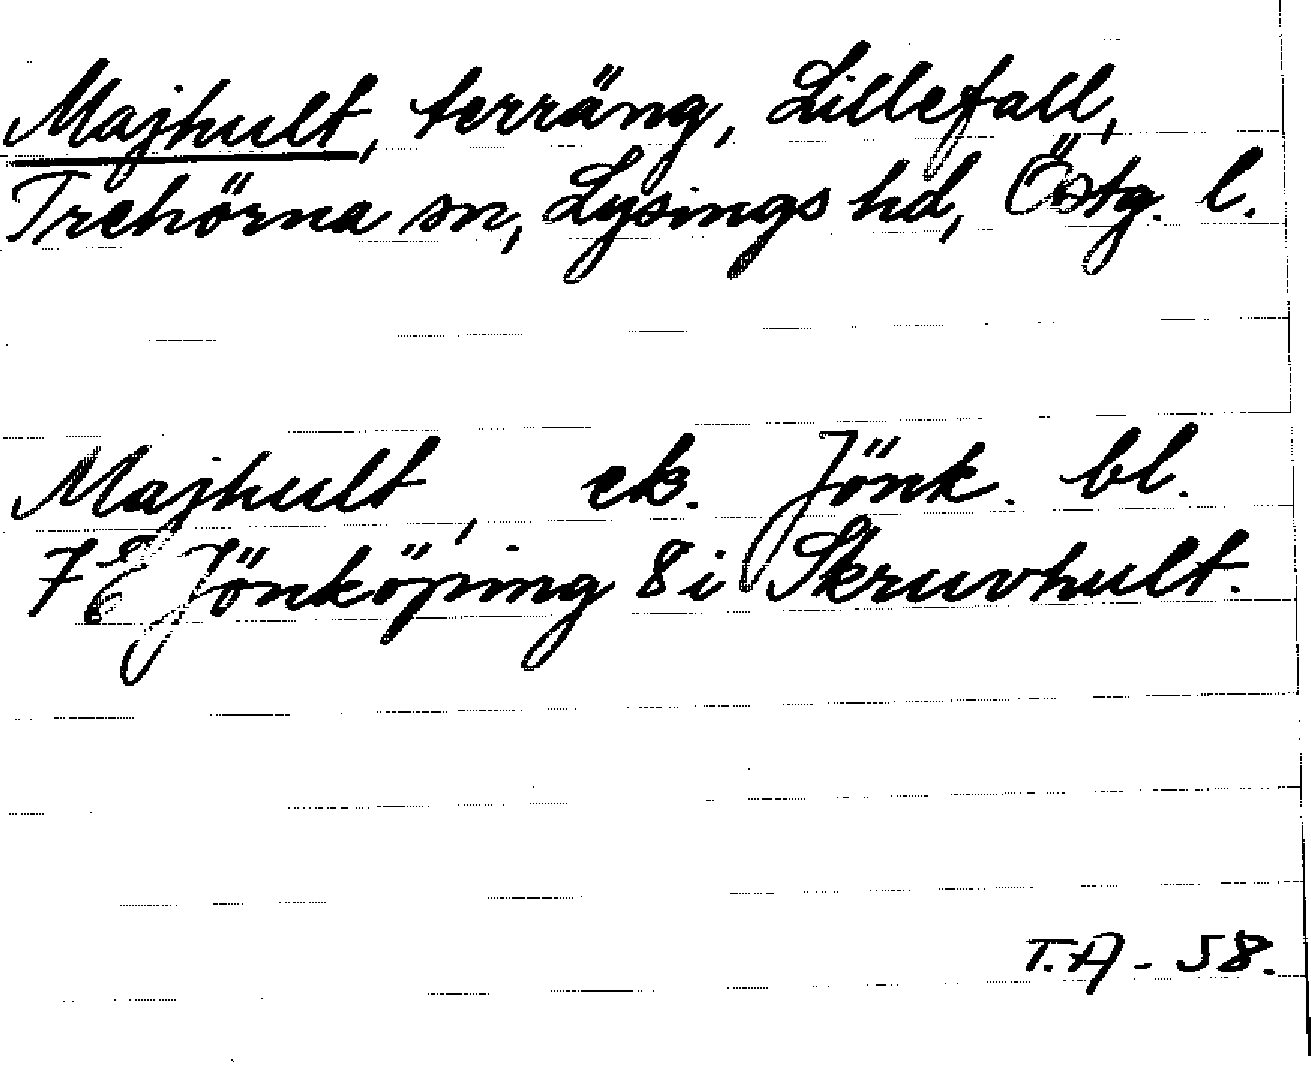 Majhult, terräng, Lillefall,
Trehörna sn, Lysings hd, Östg. l.
Majhult, ek. Jönk. bl.
7E Jönköping 8i Skruvhult.
T.A - 58.